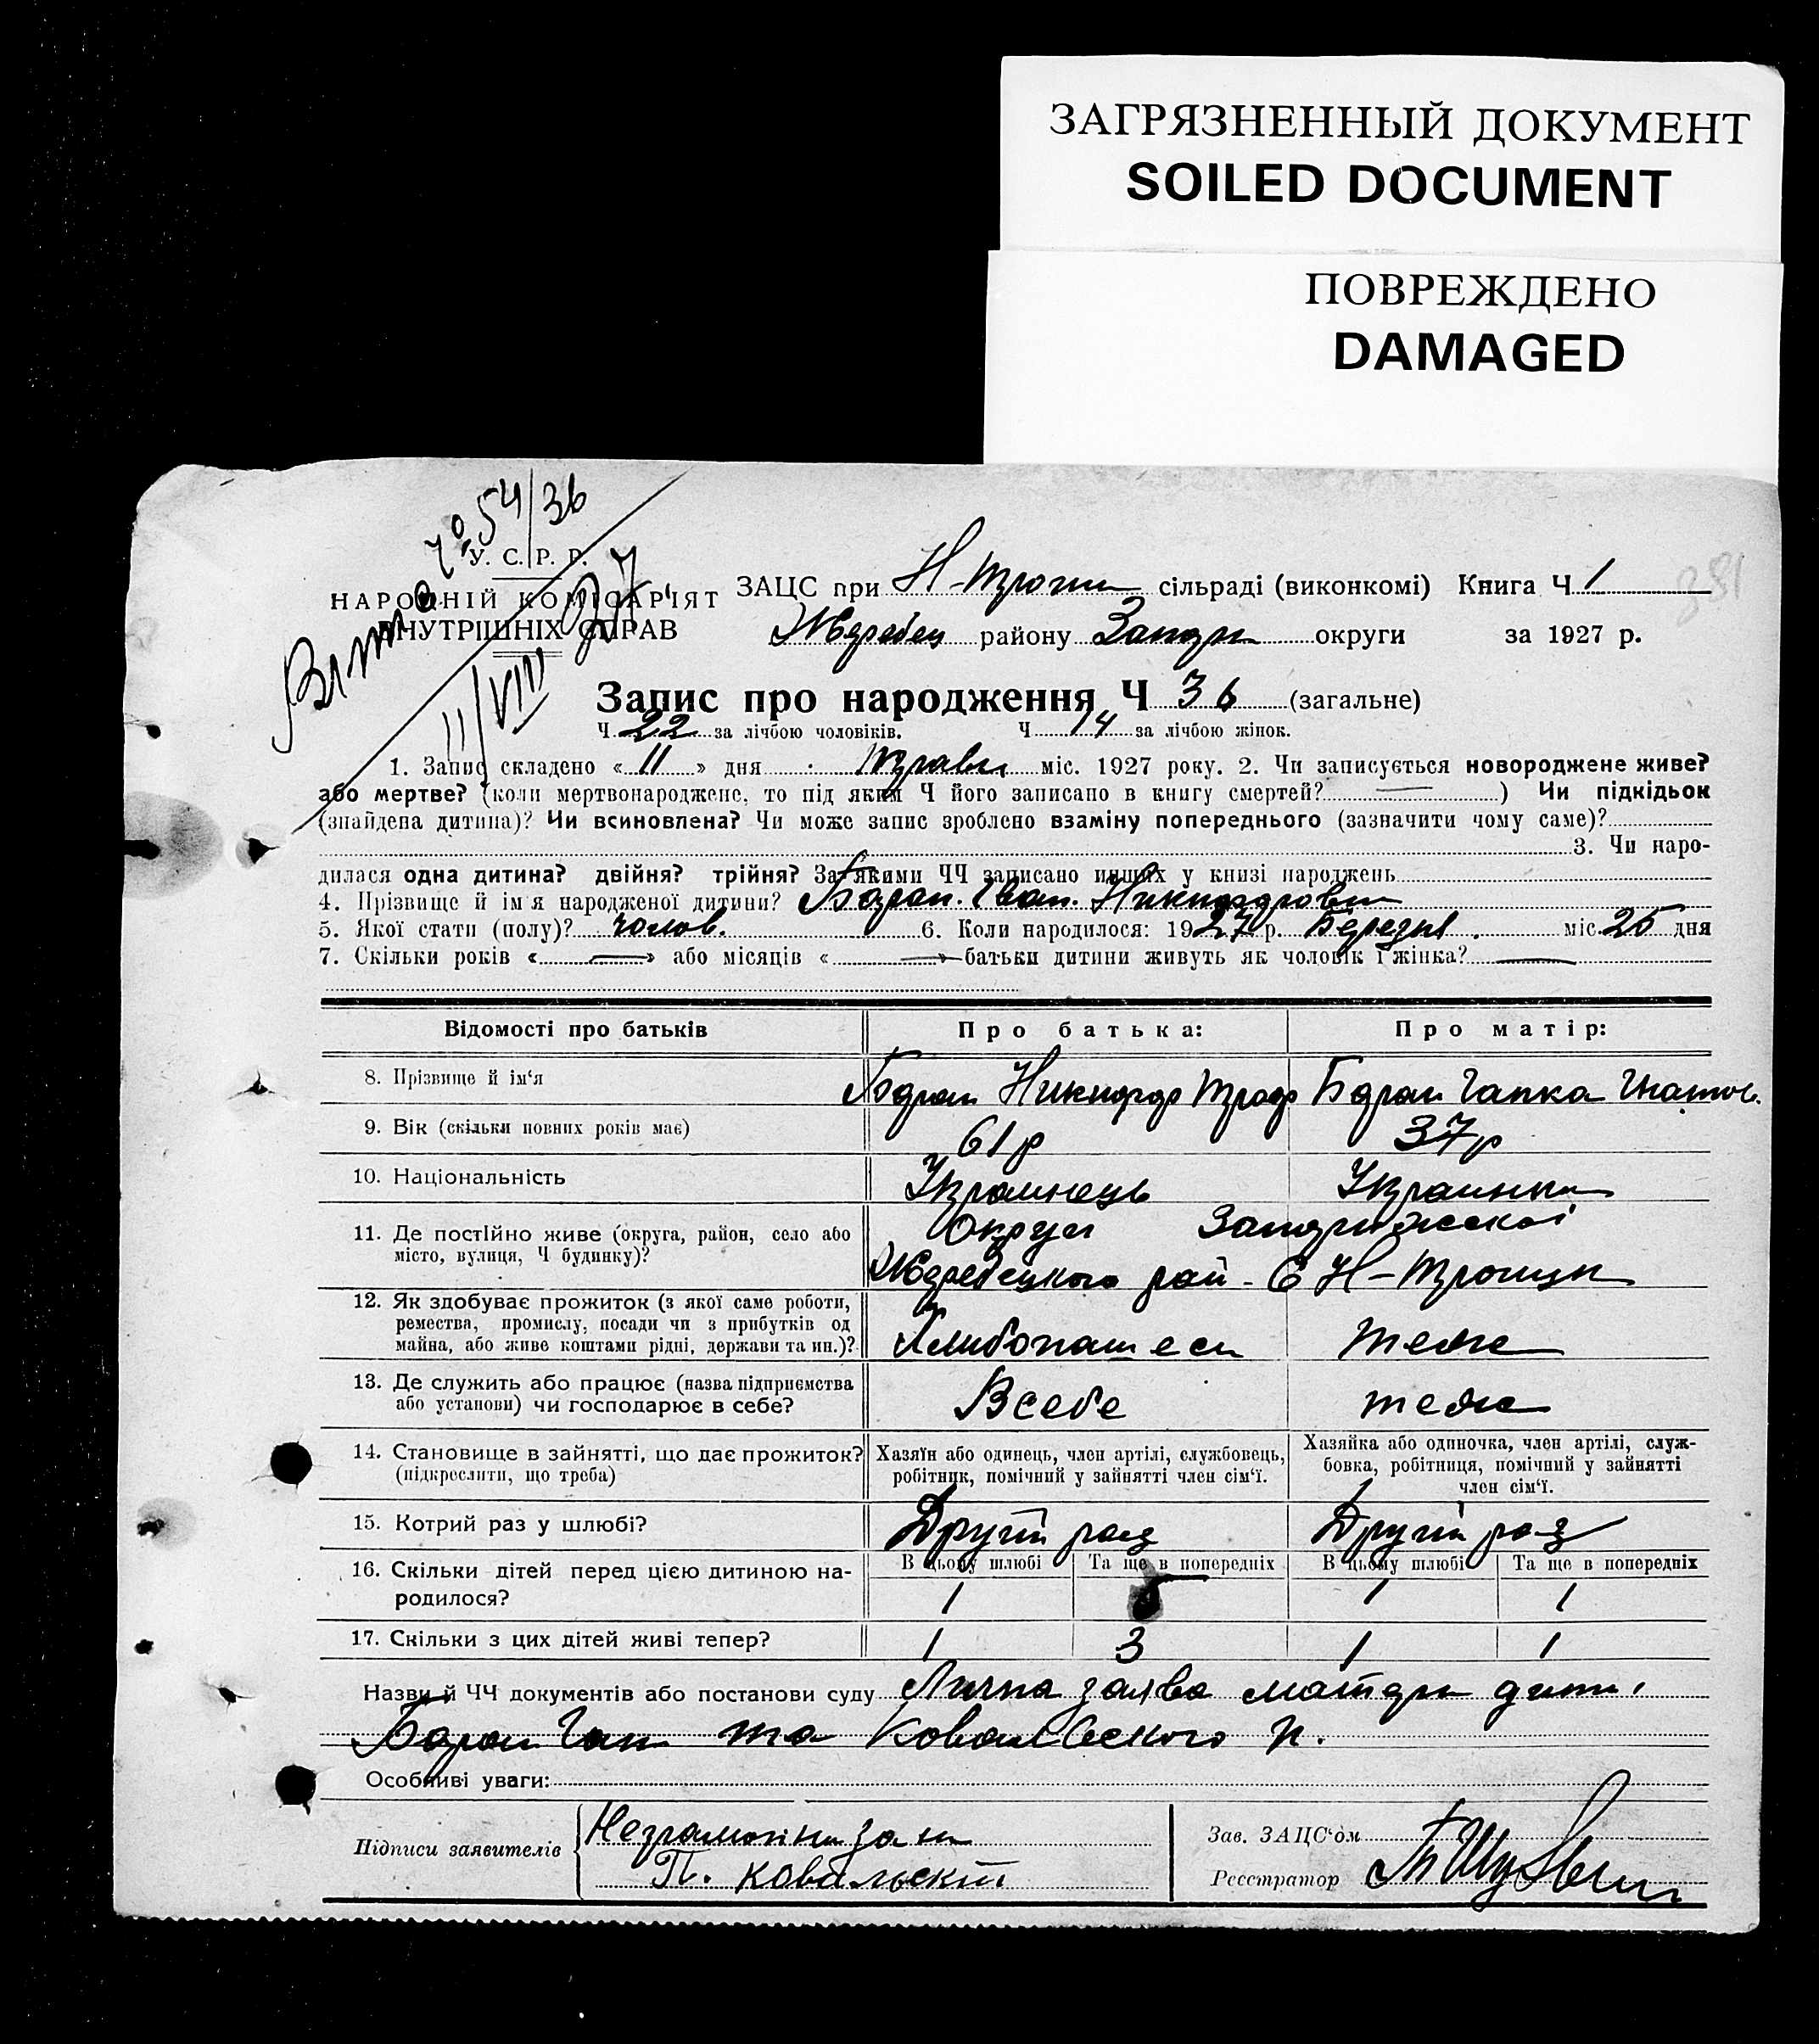 ЗАГРЯЗНЕННЫЙ ДОКУМЕНТ
SOILED DOCUMENT
ПОВРЕЖДЕНО
DAMAGED
54/36
У. С. Р. Р.
НАРОДНІЙ КОМІСАРІЯТ
ВНУТРІШНІХ СПРАВ
11/VIII 27
ЗАЦС при Н-Троїци сільраді (виконкомі) Книга Ч 1
381
Жеребец району Запор округи за 1927 р.
Запис про народження Ч 36 (загальне)
Ч 22 за лічбою чоловіків. Ч 14 за лічбою жінок.
1. Запис складено « 11 » дня Травня міс. 1927 року. 2. Чи записується новороджене живе?
або мертве? (коли мертвонароджене, то під яким Ч його записано в книгу смертей? — ) Чи підкідьок
(знайдена дитина)? Чи всиновлена? Чи може запис зроблено взаміну попереднього (зазначити чому саме)?
3. Чи наро-
дилася одна дитина? двійня? трійня? За якими ЧЧ записано инших у книзі народжень
4. Прізвище й ім'я народженої дитини? Баран Іван Никифорович
5. Якої стати (полу)? чолов. 6. Коли народилося: 1927 р. Березня міс. 25 дня
7. Скільки років « — » або місяців « — » батьки дитини живуть як чоловік і жінка? —
Відомості про батьків Про батька: Про матір:
8. Прізвище й ім'я Баран Никифор Троф Баран Гапка Гнатов.
9. Вік (скільки повних років має) 61 р 37 р
10. Національність Украинець Украинка
11. Де постійно живе (округа, район, село або Округи Запоріжської
місто, вулиця, Ч будинку)? Жеребецкого рай - С Н-Троицы
12. Як здобуває прожиток (з якої саме роботи,
ремества, промислу, посади чи з прибутків од
майна, або живе коштами рідні, держави та ин.)? Хлибопашеси теж
13. Де служить або працює (назва підприємства
або установи) чи господарює в себе? Всебе теж
14. Становище в зайнятті, що дає прожиток? Хазяїн або одинець, член артілі, службовець, Хазяйка або одиночка, член артілі, служ-
(підкреслити, що треба) робітник, помічний у зайнятті член сім'ї. бовка, робітниця, помічний у зайнятті
член сім'ї.
15. Котрий раз у шлюбі? Другий раз Другий раз
16. Скільки дітей перед цією дитиною на- В цьому шлюбі Та ще в попередніх В цьому шлюбі Та ще в попередніх
родилося? 1 5 1 1
17. Скільки з цих дітей живі тепер? 1 3 1 1
Назви й ЧЧ документів або постанови суду Лична заява матери дити
Баран Гап та Ковальского П.
Особливі уваги:
Підписи заявителів Неграмотни за ни
П. Ковальский
Зав. ЗАЦС'ом
Реєстратор